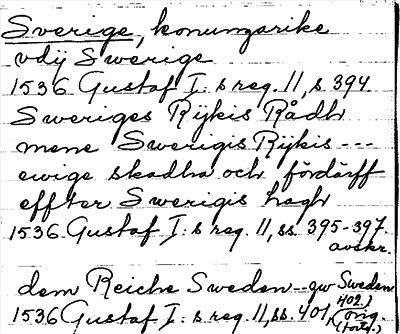 Sverige, konungarike
vdij Swerige
1536 Gustaf I:s reg. 11, s. 394
Sweriges Rijkis Rådh
mene Swerigis Rijkis ---
ewige skadha och fördärff
effter Swerigis hagh
1536 Gustaf I:s reg. 11, ss. 395-397.
avskr.
dem Reiche Sweden -- zw Sweden
1536 Gustaf I:s reg. 11, ss. 401, 402.)
(orig.
(forts.)